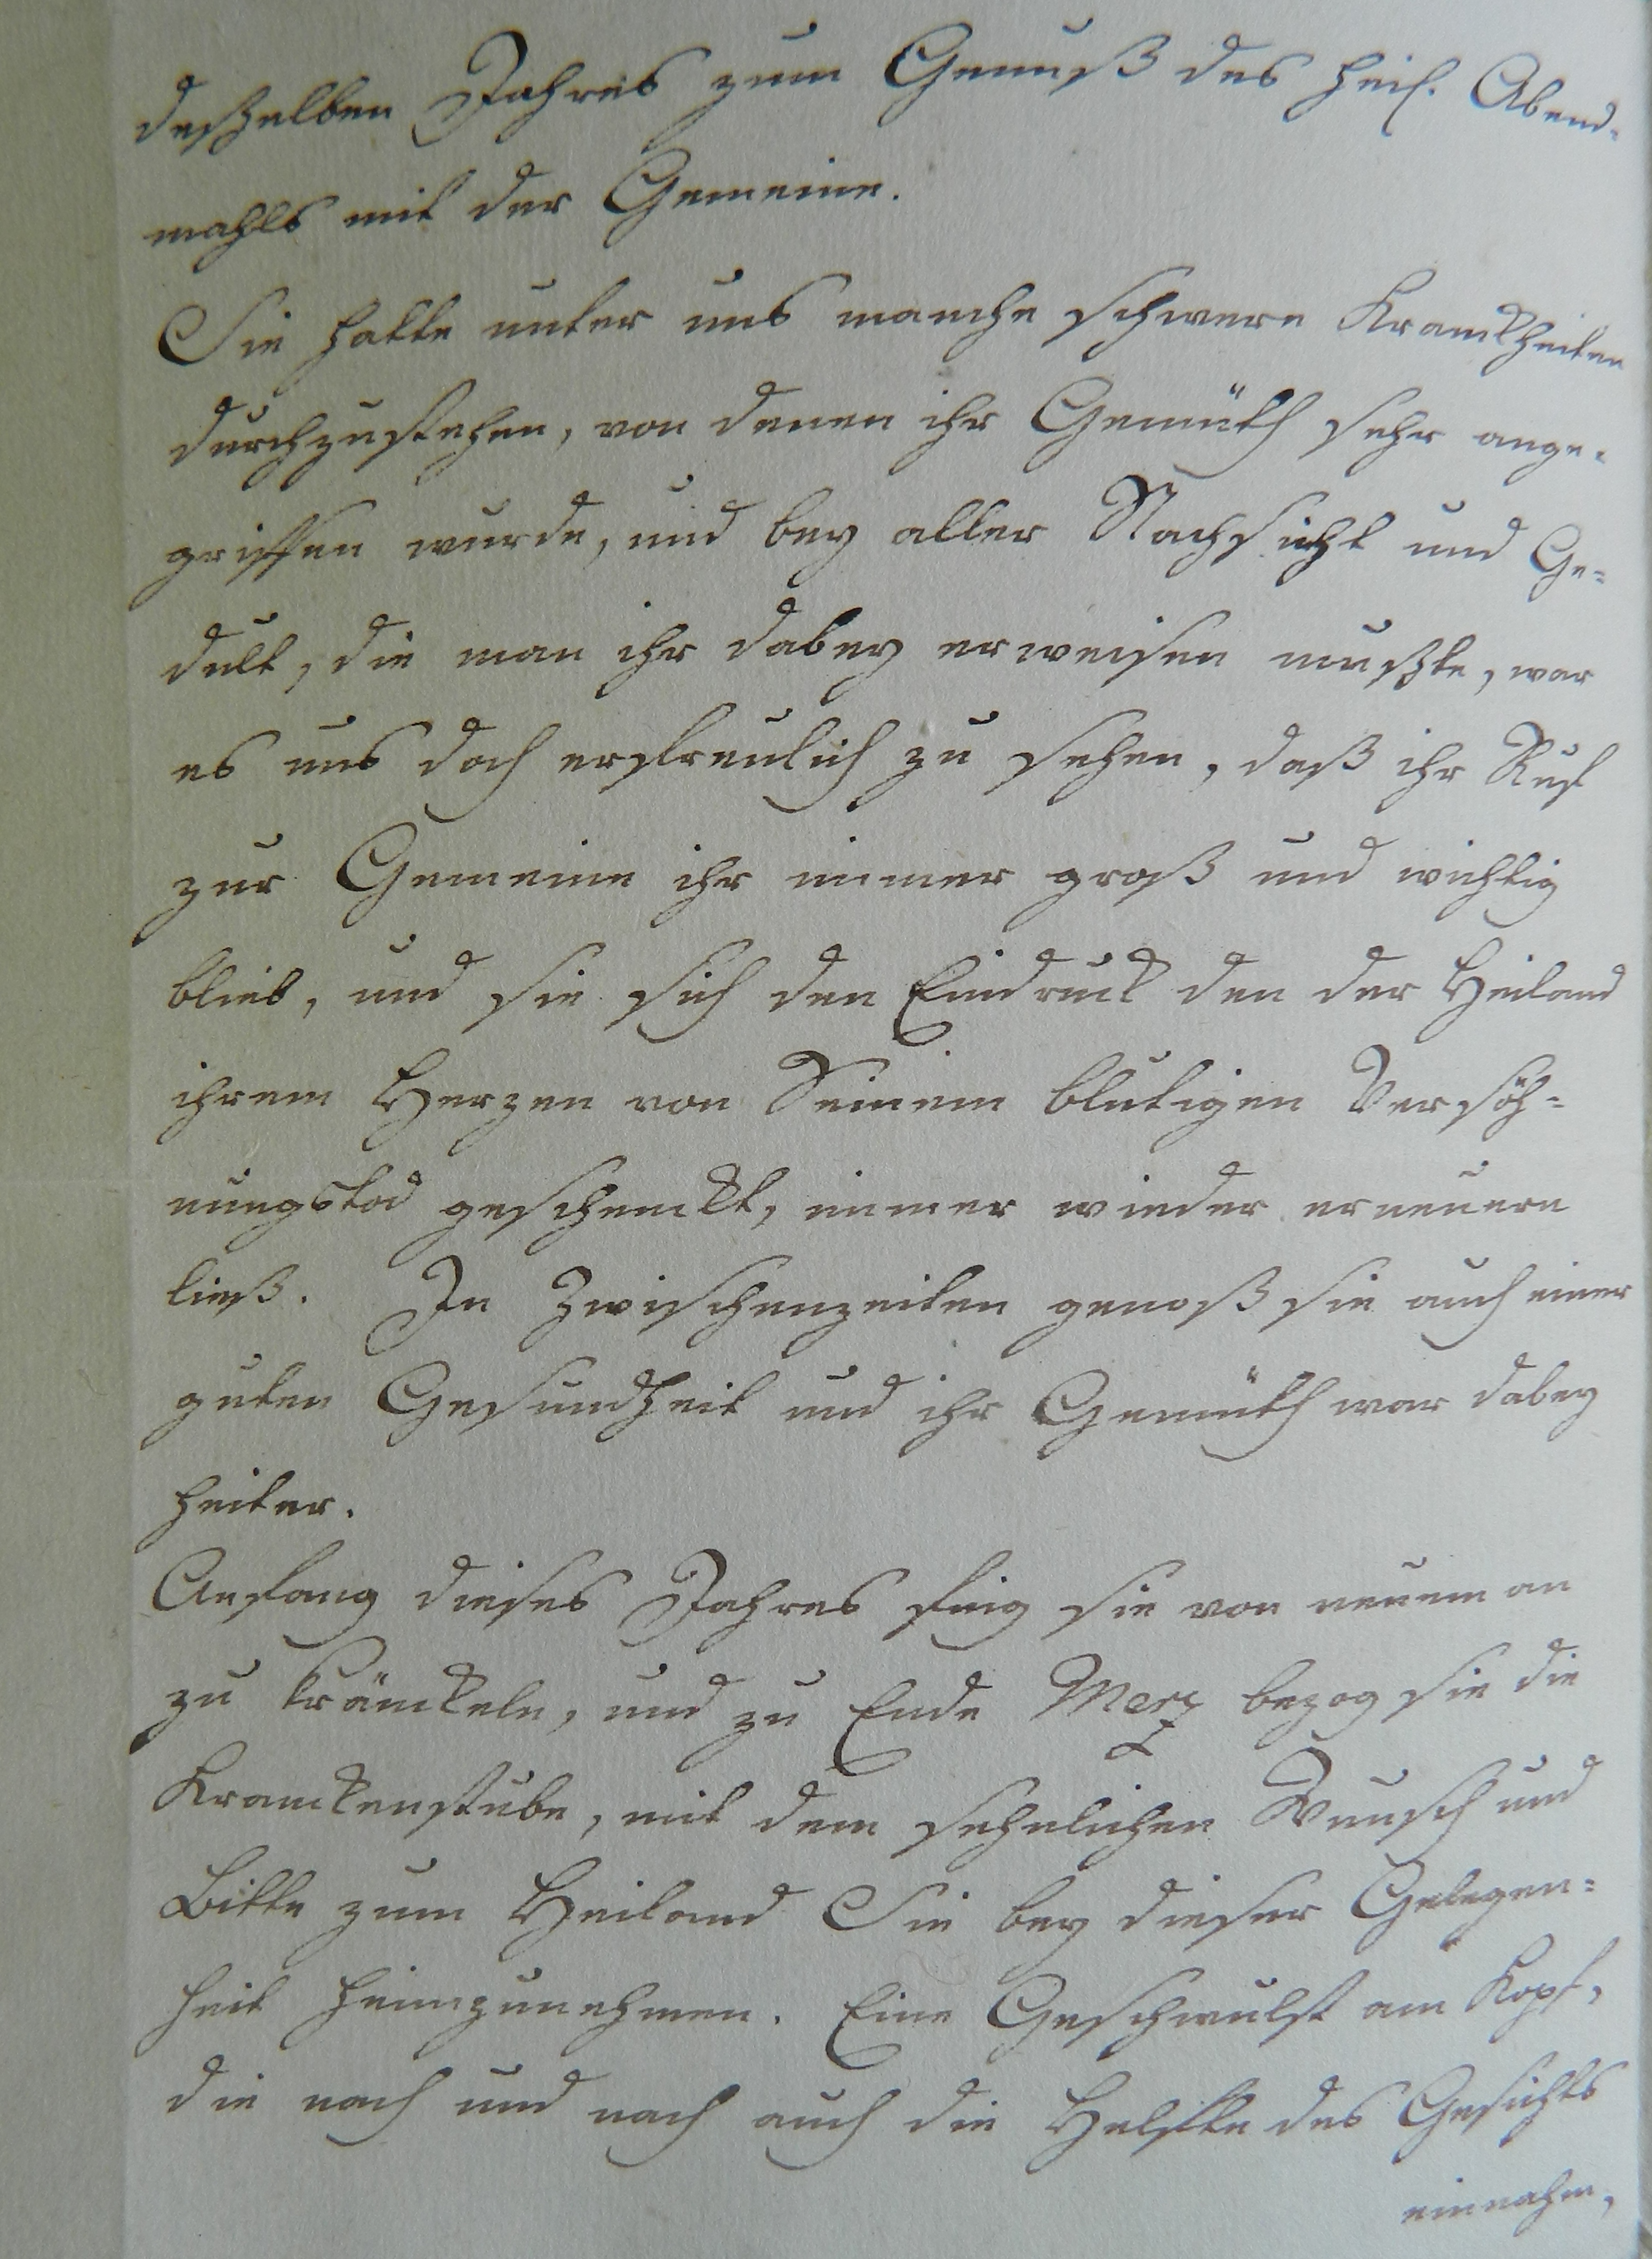 deßelben Jahres zum Genuß des heil. Abend-
mahls mit der Gemeine.
Sie hatte unter uns manche schwere Kranckheiten
durchzustehen, von denen ihr Gemüth sehr ange-
griffen wurde, und bey aller Nachsicht und Ge-
dult, die man ihr dabey erweisen mußte, war
es uns doch erfreulich zu sehen, daß ihr Ruf
zur Gemeine ihr immer groß und wichtig
blieb, und sie sich den Eindruck den der Heiland
ihrem Herzen von Seinem blutigen Versöh-
nungstod geschenckt, immer wieder erneuern
ließ. In Zwischenzeiten genoß sie auch einer
guten Gesundheit und ihr Gemüth war dabey
heiter.
Anfang dieses Jahres fing sie von neuem an
zu kränckeln, und zu Ende Merz bezog sie die
Kranckenstube, mit dem sehnlichen Wunsch und
Bitte zum Heiland Sie bey dieser Gelegen-
heit heimzunehmen. Eine Geschwulst am Kopf,
die nach und nach auch die Helfte des Gesichts
einnahm,